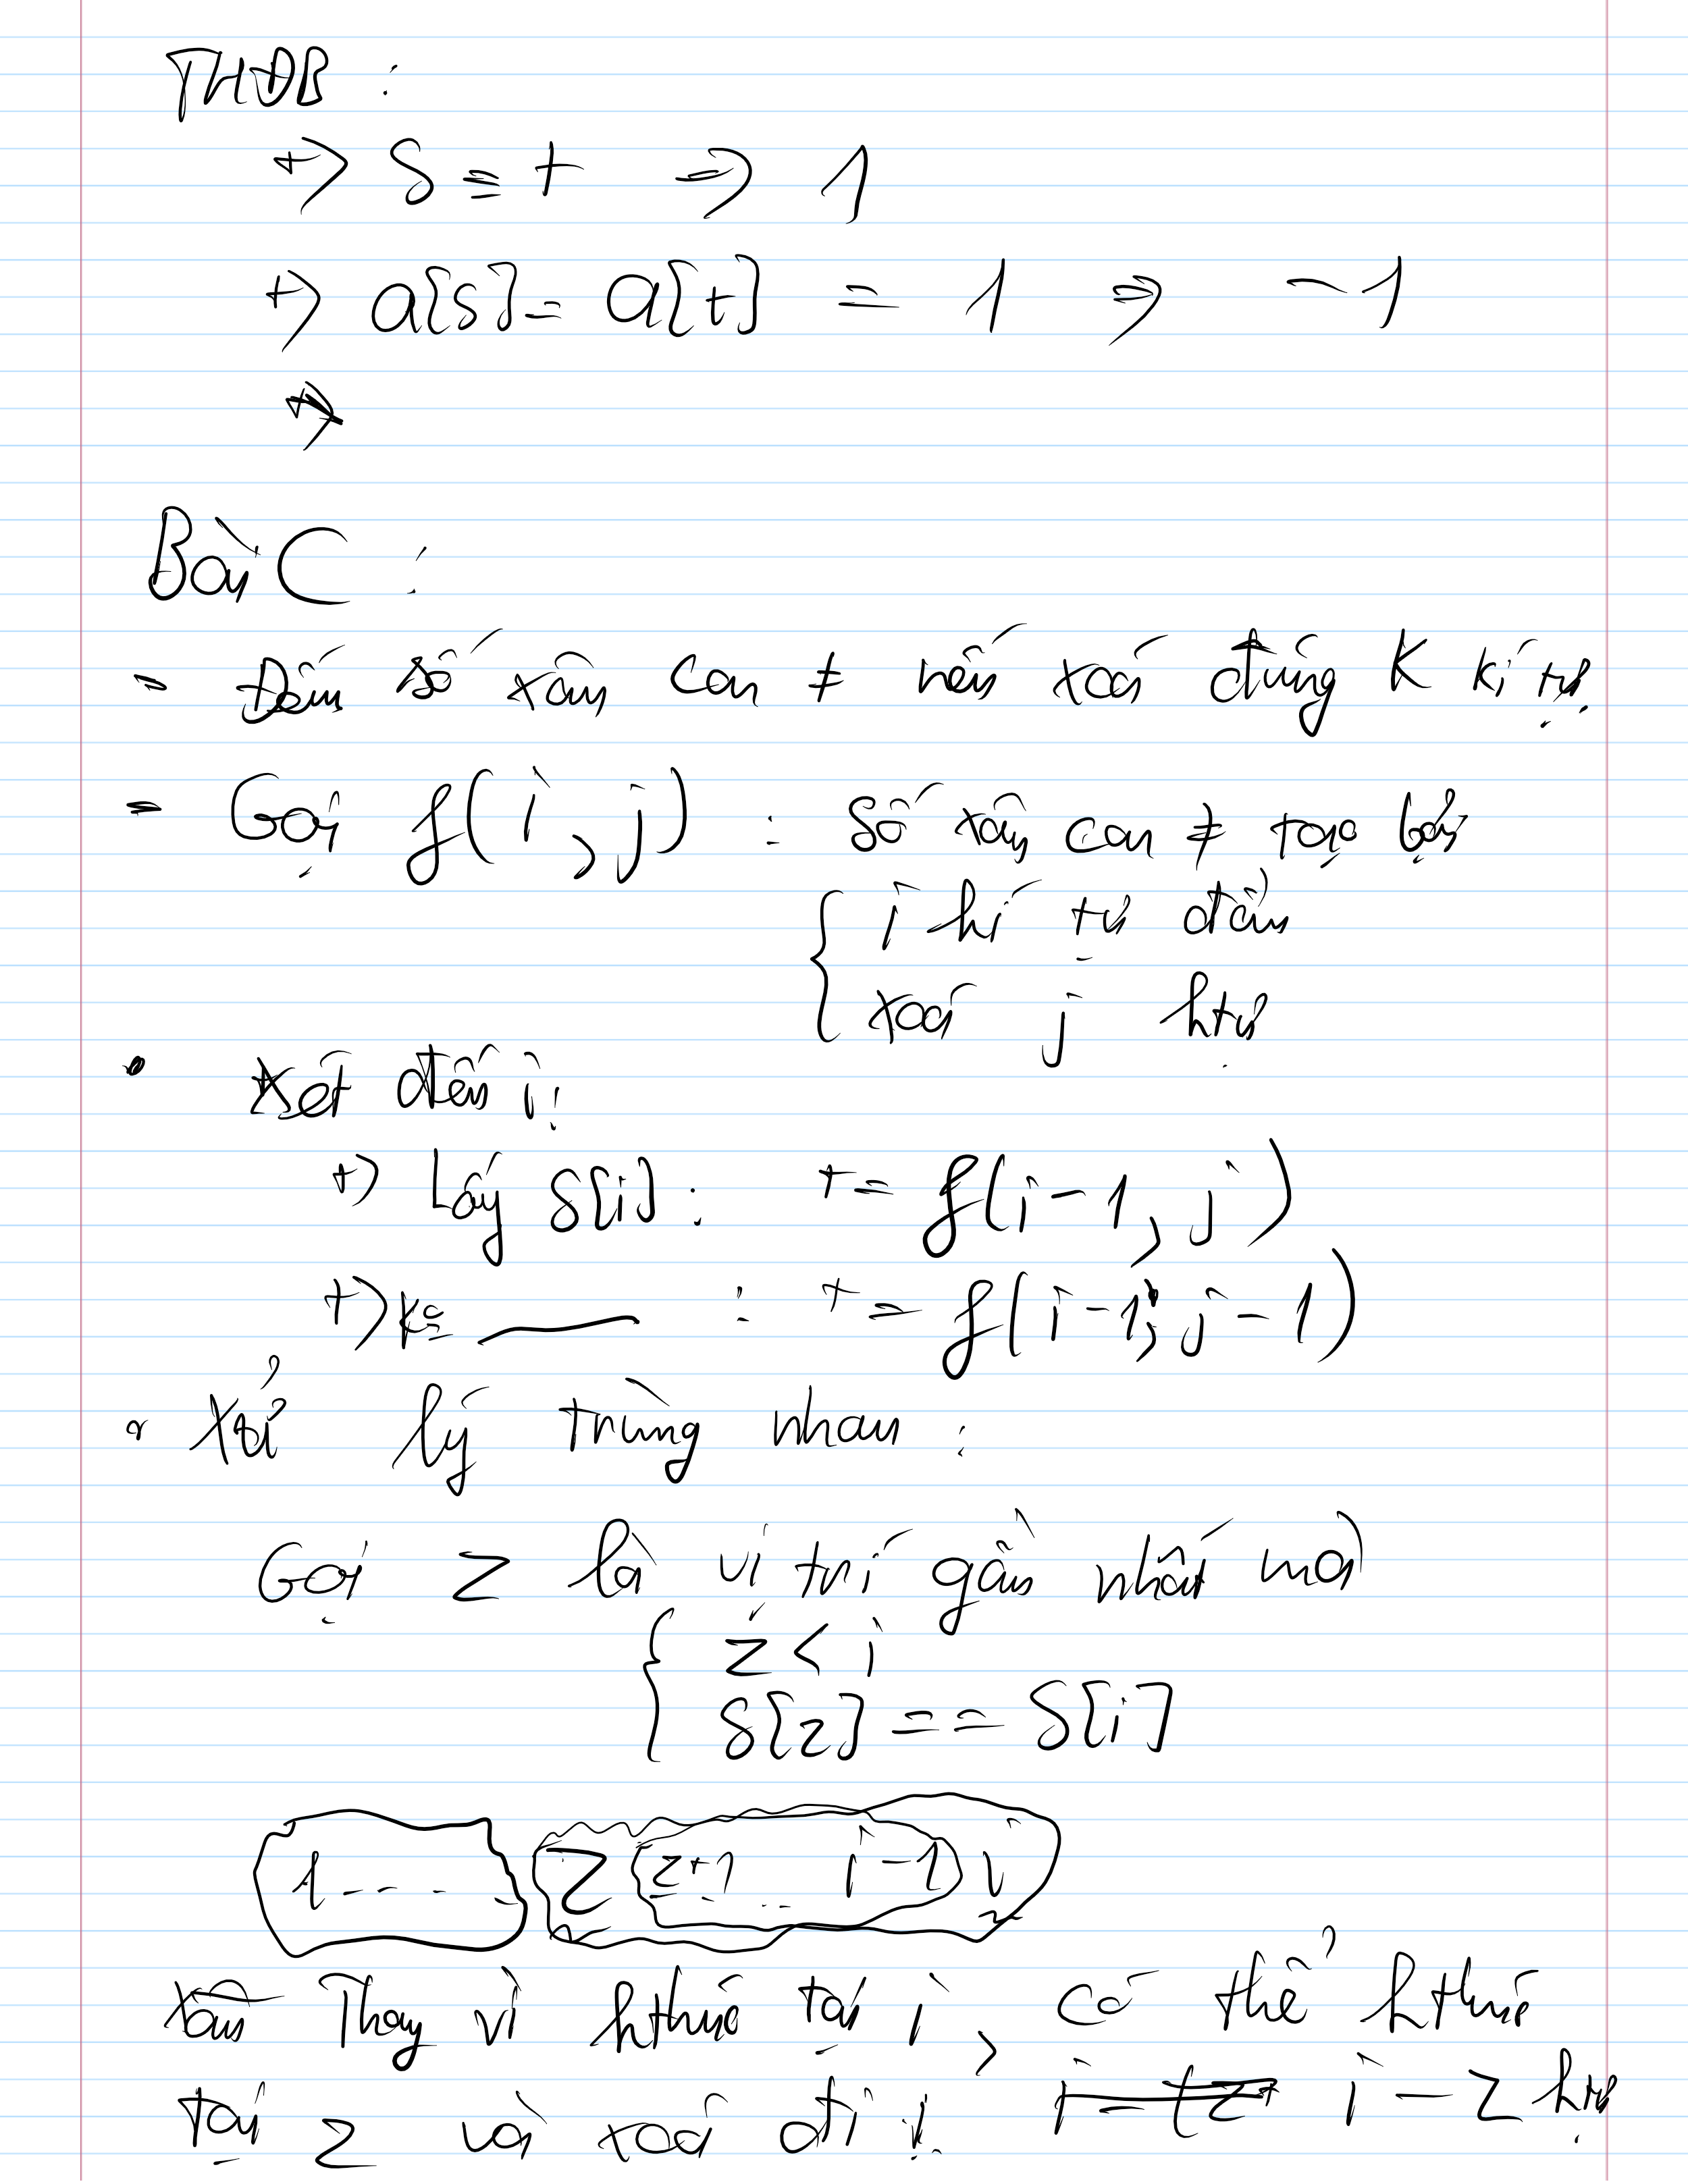 THĐB :
+> s ≡ t => 1
+> a[s] = a[t] = 1 => -1
Bài C :
- Đếm số xâu con ≠ nếu xoá đúng K kí tự
- Gọi f(i, j) : số xâu con ≠ tạo bởi
{ i kí tự đầu
xoá j ktự
• Xét đến i:
+> Lấy s[i] : += f(i-1, j)
+> Ko ___ : += f(i-1, j-1)
• Xử lý trùng nhau :
Gọi z là vị trí gần nhất mà
{ z < i
s[z] == s[i]
1 - - - - z z+1 ... i-1 i
Thay vì kthúc tại i, có thể kthúc
tại z và xoá đi i - z ktự